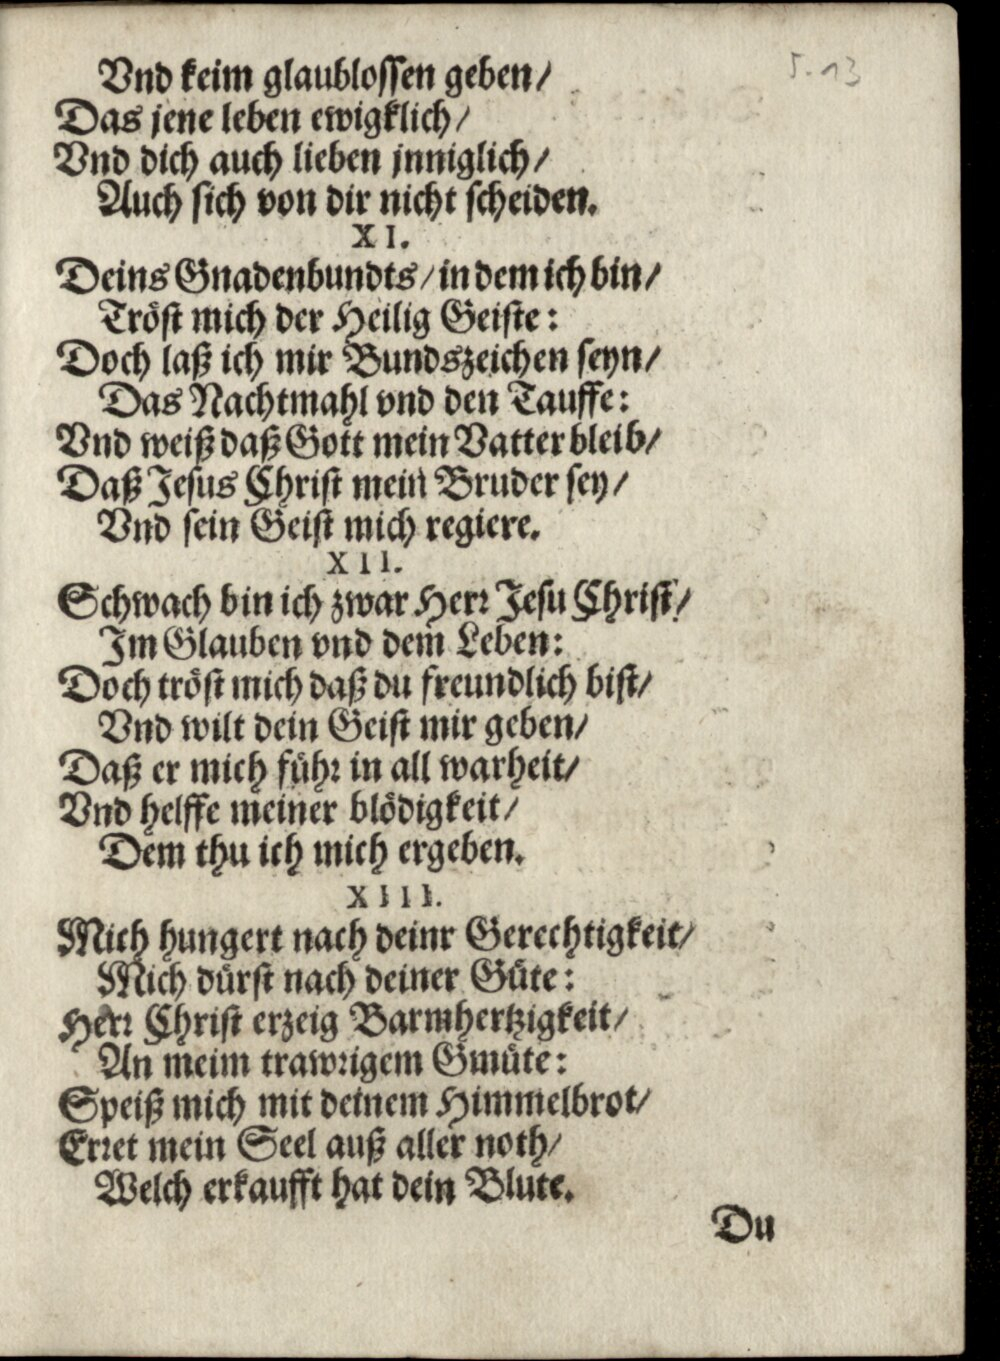 5.13
Vnd keim glaublossen geben/
Das jene leben ewigklich/
Vnd dich auch lieben jnniglich/
Auch sich von dir nicht scheiden.
XI.
Deins Gnadenbundts/ in dem ich bin/
Tröst mich der Heilig Geiste:
Doch laß ich mir Bundszeichen seyn/
Das Nachtmahl vnd den Tauffe:
Vnd weiß daß Gott mein Vatter bleib/
Daß Jesus Christ mein Bruder sey/
Vnd sein Geist mich regiere.
XII.
Schwach bin ich zwar Herr Jesu Christ/
Im Glauben vnd dem Leben:
Doch tröst mich daß du freundlich bist/
Vnd wilt dein Geist mir geben/
Daß er mich führ in all warheit/
Vnd helffe meiner blödigkeit/
Dem thu ich mich ergeben.
XIII.
Mich hungert nach deinr Gerechtigkeit/
Mich dürst nach deiner Güte:
Herr Christ erzeig Barmhertzigkeit/
An meim trawrigem Gmüte:
Speiß mich mit deinem Himmelbrot/
Erret mein Seel auß aller noth/
Welch erkaufft hat dein Blute.
Du